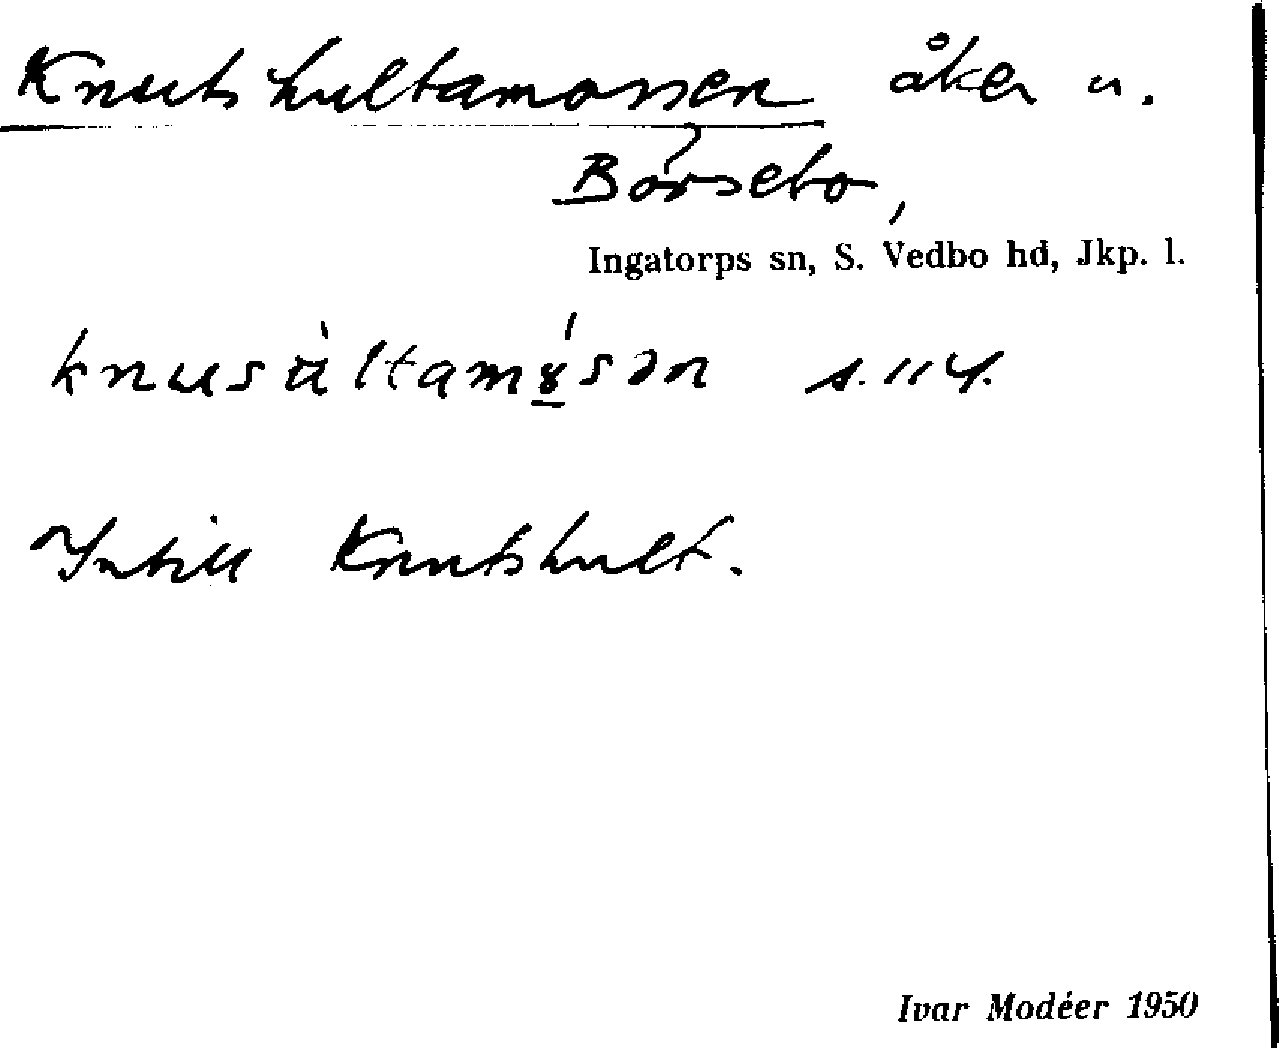 Knutshultamossen åker u.
Börsebo,
Ingatorps sn, S. Vedbo hd, Jkp. l.
s. 114.
Intill Knutshult.
Ivar Modéer 1950